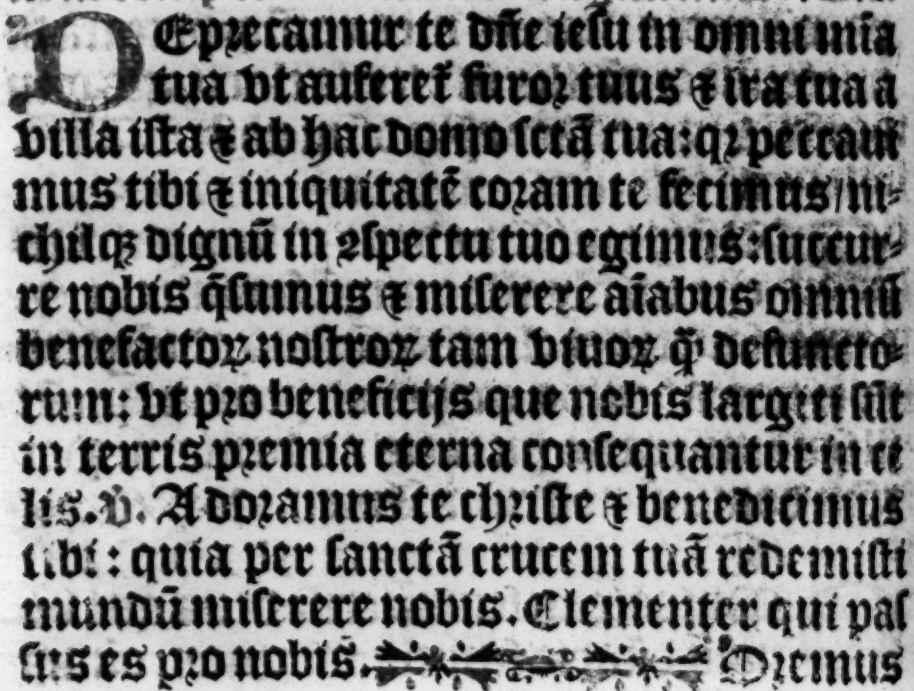 DEprecamur te dñe iesu in omni mīa
tua vt auferet᷑ furor tuus ⁊ ira tua a
villa ista ⁊ ab hac domo sctā tua: qꝛ peccaui
mus tibi ⁊ iniquitatē coram te fecimus/ ni-
chilqꝫ dignū in ꝯspectu tuo egimus: succur-
re nobis q̄sumus ⁊ miserere aīabus omniū
benefactoꝝ nostroꝝ tam viuoꝝ q̄ꝫ defuncto-
rum: vt pro beneficijs que nobis largiti sūt
in terris premia eterna consequantur in ce
lis. ℣. Adoramus te christe ⁊ benedicimus
tibi: quia per sanctā crucem tuā redemisti
mundū miserere nobis. Clementer qui pas
sus es pro nobis. Oremus